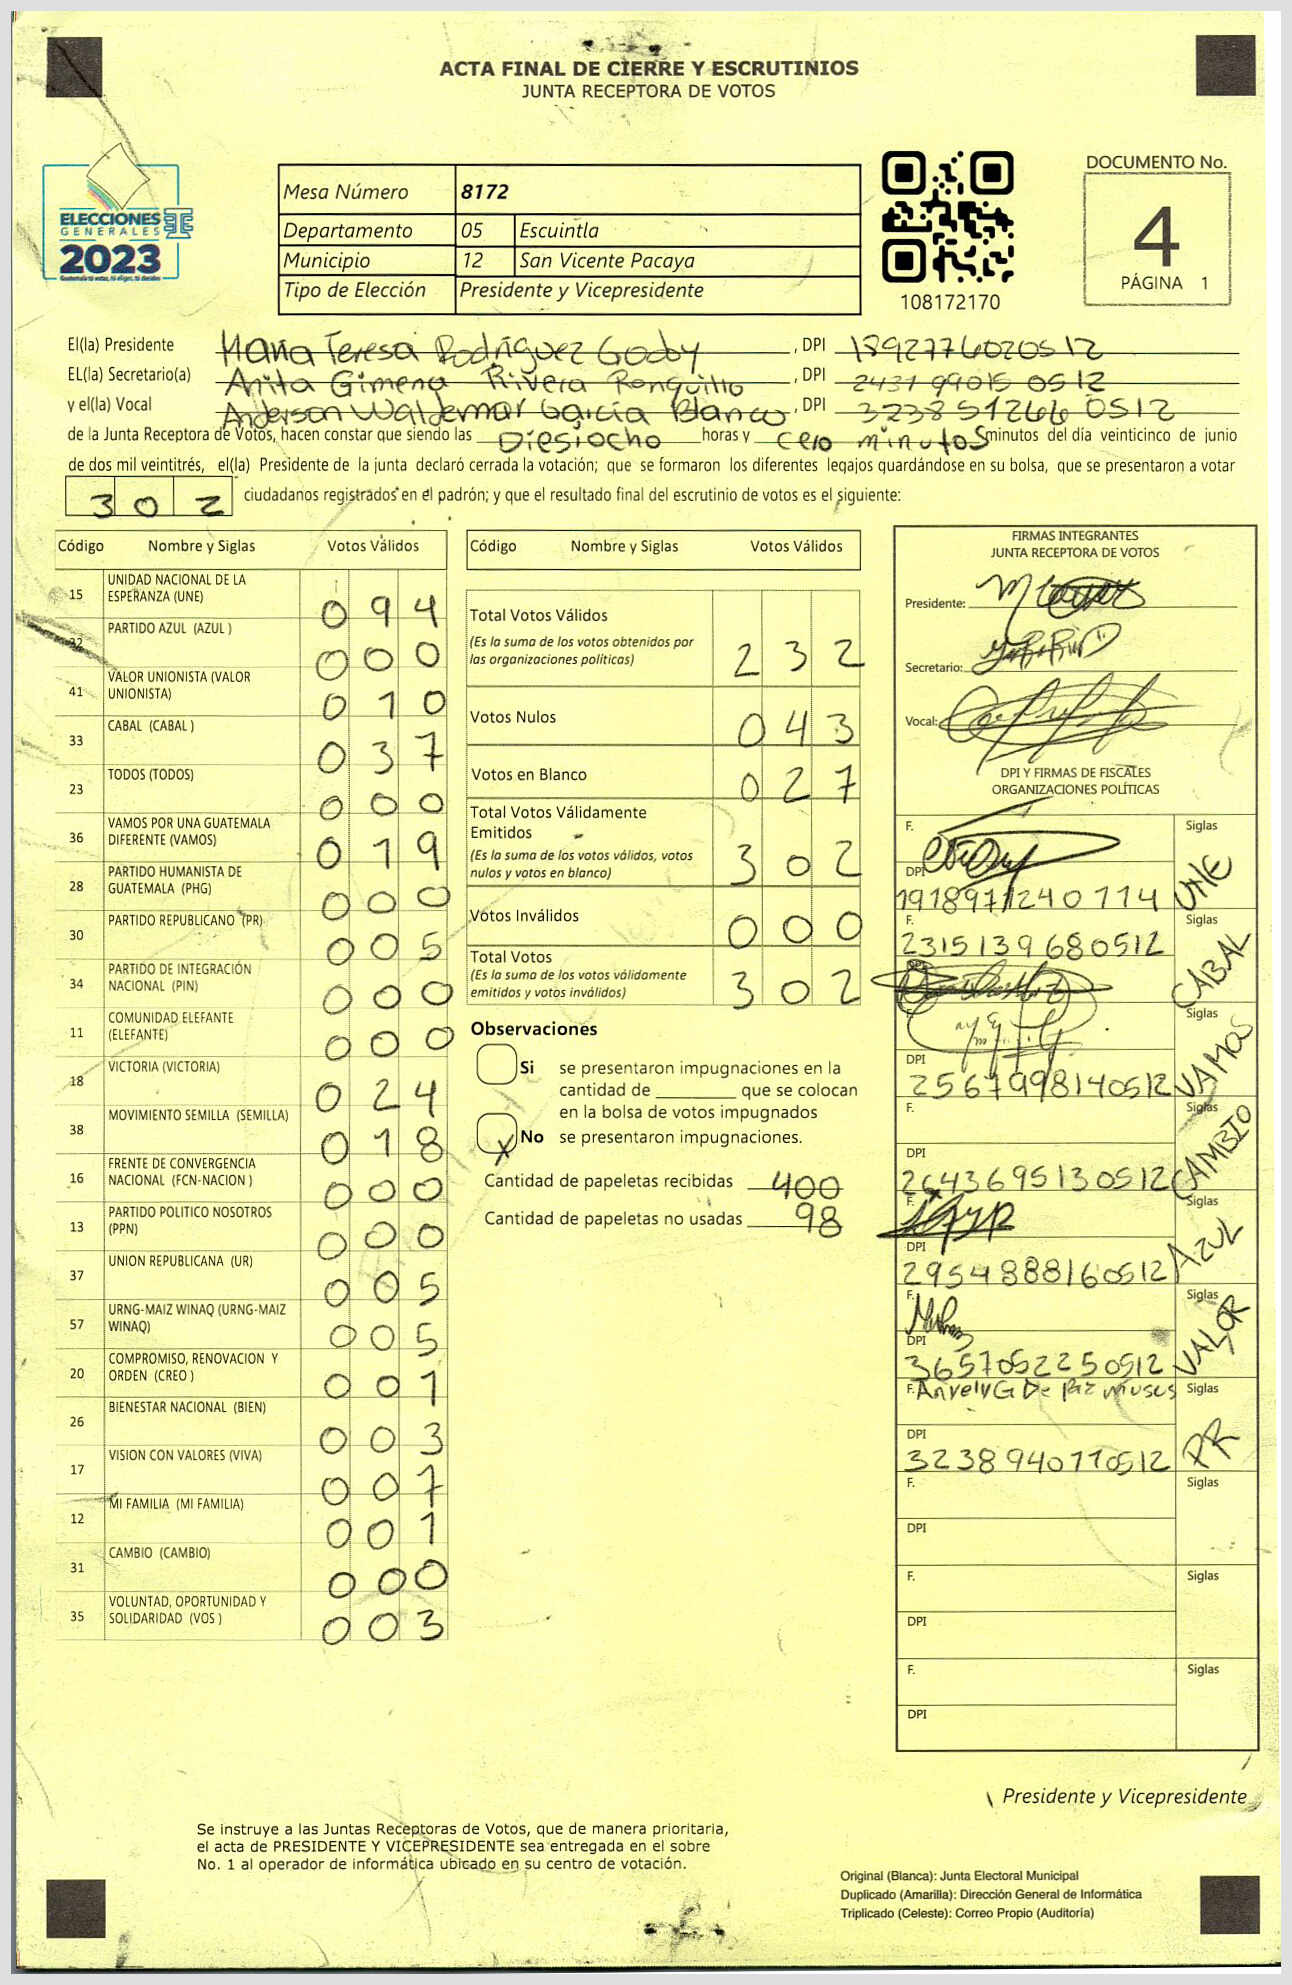 ACTA FINAL DE CIERRE Y ESCRUTINIOS
JUNTA RECEPTORA DE VOTOS
ELECCIONES
GENERALES
2023
Mesa Número 8172
Departamento 05 Escuintla
Municipio 12 San Vicente Pacaya
Tipo de Elección Presidente y Vicepresidente
108172170
DOCUMENTO No.
4
PÁGINA 1
El(la) Presidente Maria Teresa Rodriguez Godoy , DPI 1892776020512
EL(la) Secretario(a) Anita Gimena Rivera Ronquillo , DPI 2437 99015 0512
y el(la) Vocal Anderson Waldemar Garcia Blanco , DPI 3238 51266 0512
de la Junta Receptora de Votos, hacen constar que siendo las Diesiocho horas y cero minutos minutos del día veinticinco de junio
de dos mil veintitrés, el(la) Presidente de la junta declaró cerrada la votación; que se formaron los diferentes legajos guardándose en su bolsa, que se presentaron a votar
302 ciudadanos registrados en el padrón; y que el resultado final del escrutinio de votos es el siguiente:
Código Nombre y Siglas Votos Válidos
15 UNIDAD NACIONAL DE LA ESPERANZA (UNE) 094
32 PARTIDO AZUL (AZUL ) 000
41 VALOR UNIONISTA (VALOR UNIONISTA) 010
33 CABAL (CABAL ) 037
23 TODOS (TODOS) 000
36 VAMOS POR UNA GUATEMALA DIFERENTE (VAMOS) 019
28 PARTIDO HUMANISTA DE GUATEMALA (PHG) 000
30 PARTIDO REPUBLICANO (PR) 005
34 PARTIDO DE INTEGRACIÓN NACIONAL (PIN) 000
11 COMUNIDAD ELEFANTE (ELEFANTE) 000
18 VICTORIA (VICTORIA) 024
38 MOVIMIENTO SEMILLA (SEMILLA) 018
16 FRENTE DE CONVERGENCIA NACIONAL (FCN-NACION ) 000
13 PARTIDO POLITICO NOSOTROS (PPN) 000
37 UNION REPUBLICANA (UR) 005
57 URNG-MAIZ WINAQ (URNG-MAIZ WINAQ) 005
20 COMPROMISO, RENOVACION Y ORDEN (CREO ) 001
26 BIENESTAR NACIONAL (BIEN) 003
17 VISION CON VALORES (VIVA) 007
12 MI FAMILIA (MI FAMILIA) 001
31 CAMBIO (CAMBIO) 000
35 VOLUNTAD, OPORTUNIDAD Y SOLIDARIDAD (VOS ) 003
Código Nombre y Siglas Votos Válidos
Total Votos Válidos 232
(Es la suma de los votos obtenidos por
las organizaciones políticas)
Votos Nulos 043
Votos en Blanco 027
Total Votos Válidamente
Emitidos 302
(Es la suma de los votos válidos, votos
nulos y votos en blanco)
Votos Inválidos 000
Total Votos 302
(Es la suma de los votos válidamente
emitidos y votos inválidos)
Observaciones
Si se presentaron impugnaciones en la
cantidad de ________ que se colocan
en la bolsa de votos impugnados
X No se presentaron impugnaciones.
Cantidad de papeletas recibidas 400
Cantidad de papeletas no usadas 98
FIRMAS INTEGRANTES
JUNTA RECEPTORA DE VOTOS
Presidente:
Secretario:
Vocal:
DPI Y FIRMAS DE FISCALES
ORGANIZACIONES POLÍTICAS
F. Siglas UNE
DPI 1918971240714
F. Siglas CABAL
2315139680512
F. Siglas VAMOS
DPI 2567998140512
F. Siglas CAMBIO
DPI 2643695130512
F. Siglas AZUL
DPI 2954888160512
F. Siglas VALOR
DPI 3657052250512
F. Siglas PR
DPI 3238940770512
F. Siglas
DPI
F. Siglas
DPI
F. Siglas
DPI
Presidente y Vicepresidente
Se instruye a las Juntas Receptoras de Votos, que de manera prioritaria,
el acta de PRESIDENTE Y VICEPRESIDENTE sea entregada en el sobre
No. 1 al operador de informática ubicado en su centro de votación.
Original (Blanca): Junta Electoral Municipal
Duplicado (Amarilla): Dirección General de Informática
Triplicado (Celeste): Correo Propio (Auditoría)